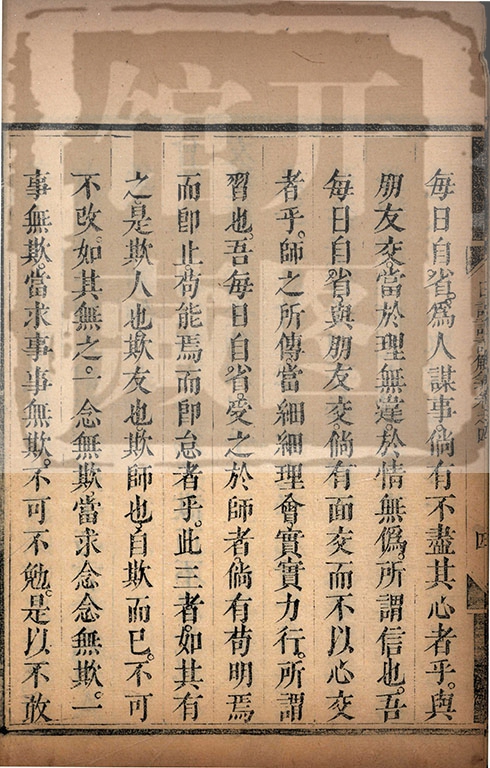 每日自省爲人謀事倘有不盡其心者乎。與
朋友交。當於理無違。於情無僞。所謂信也。吾
每日自省。與朋友交。倘有面交而不以心交
者乎。師之所傳當細細理會實實力行。所謂
習也。吾每日自省。受之於師者倘有苟明焉
而卽止苟能焉而卽怠者乎。此三者。如其有
之是欺人也欺友也欺師也自欺而已。不可
不改。如其無之。一念無欺當求念念無欺。一
事無欺當求事事無欺。不可不勉。是以不敢